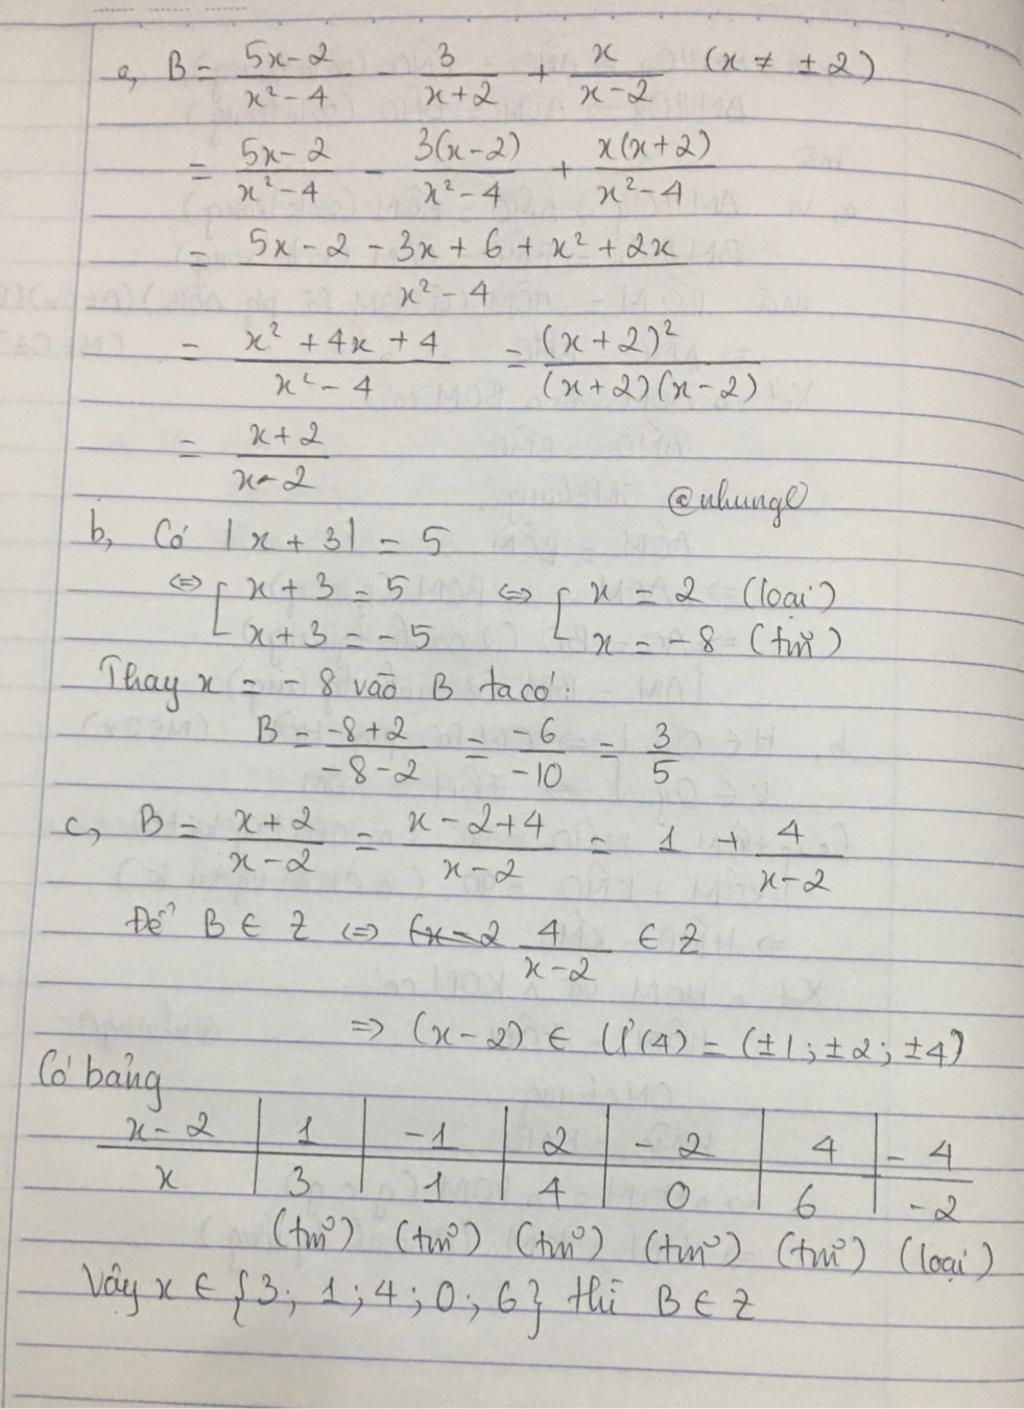 a, B = (5x-2)/(x²-4) - 3/(x+2) + x/(x-2) (x ≠ ±2)
= (5x-2)/(x²-4) - 3(x-2)/(x²-4) + x(x+2)/(x²-4)
= (5x-2-3x+6+x²+2x)/(x²-4)
= (x²+4x+4)/(x²-4) = (x+2)²/((x+2)(x-2))
= (x+2)/(x-2)
@nhungl
b, Có |x+3| = 5
⇔ [ x+3 = 5 ⇔ [ x = 2 (loại)
x+3 = -5 x = -8 (tm)
Thay x = -8 vào B ta có:
B = (-8+2)/(-8-2) = -6/-10 = 3/5
c, B = (x+2)/(x-2) = (x-2+4)/(x-2) = 1 + 4/(x-2)
Để B ∈ Z ⇔ 4/(x-2) ∈ Z
⇒ (x-2) ∈ Ư(4) = (±1; ±2; ±4)
Có bảng
x-2 | 1 | -1 | 2 | -2 | 4 | -4
x | 3 | 1 | 4 | 0 | 6 | -2
(tm) (tm) (tm) (tm) (tm) (loại)
Vậy x ∈ {3; 1; 4; 0; 6} thì B ∈ Z